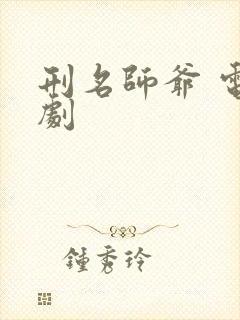 刑名師爺 電
劇
鍾秀玲